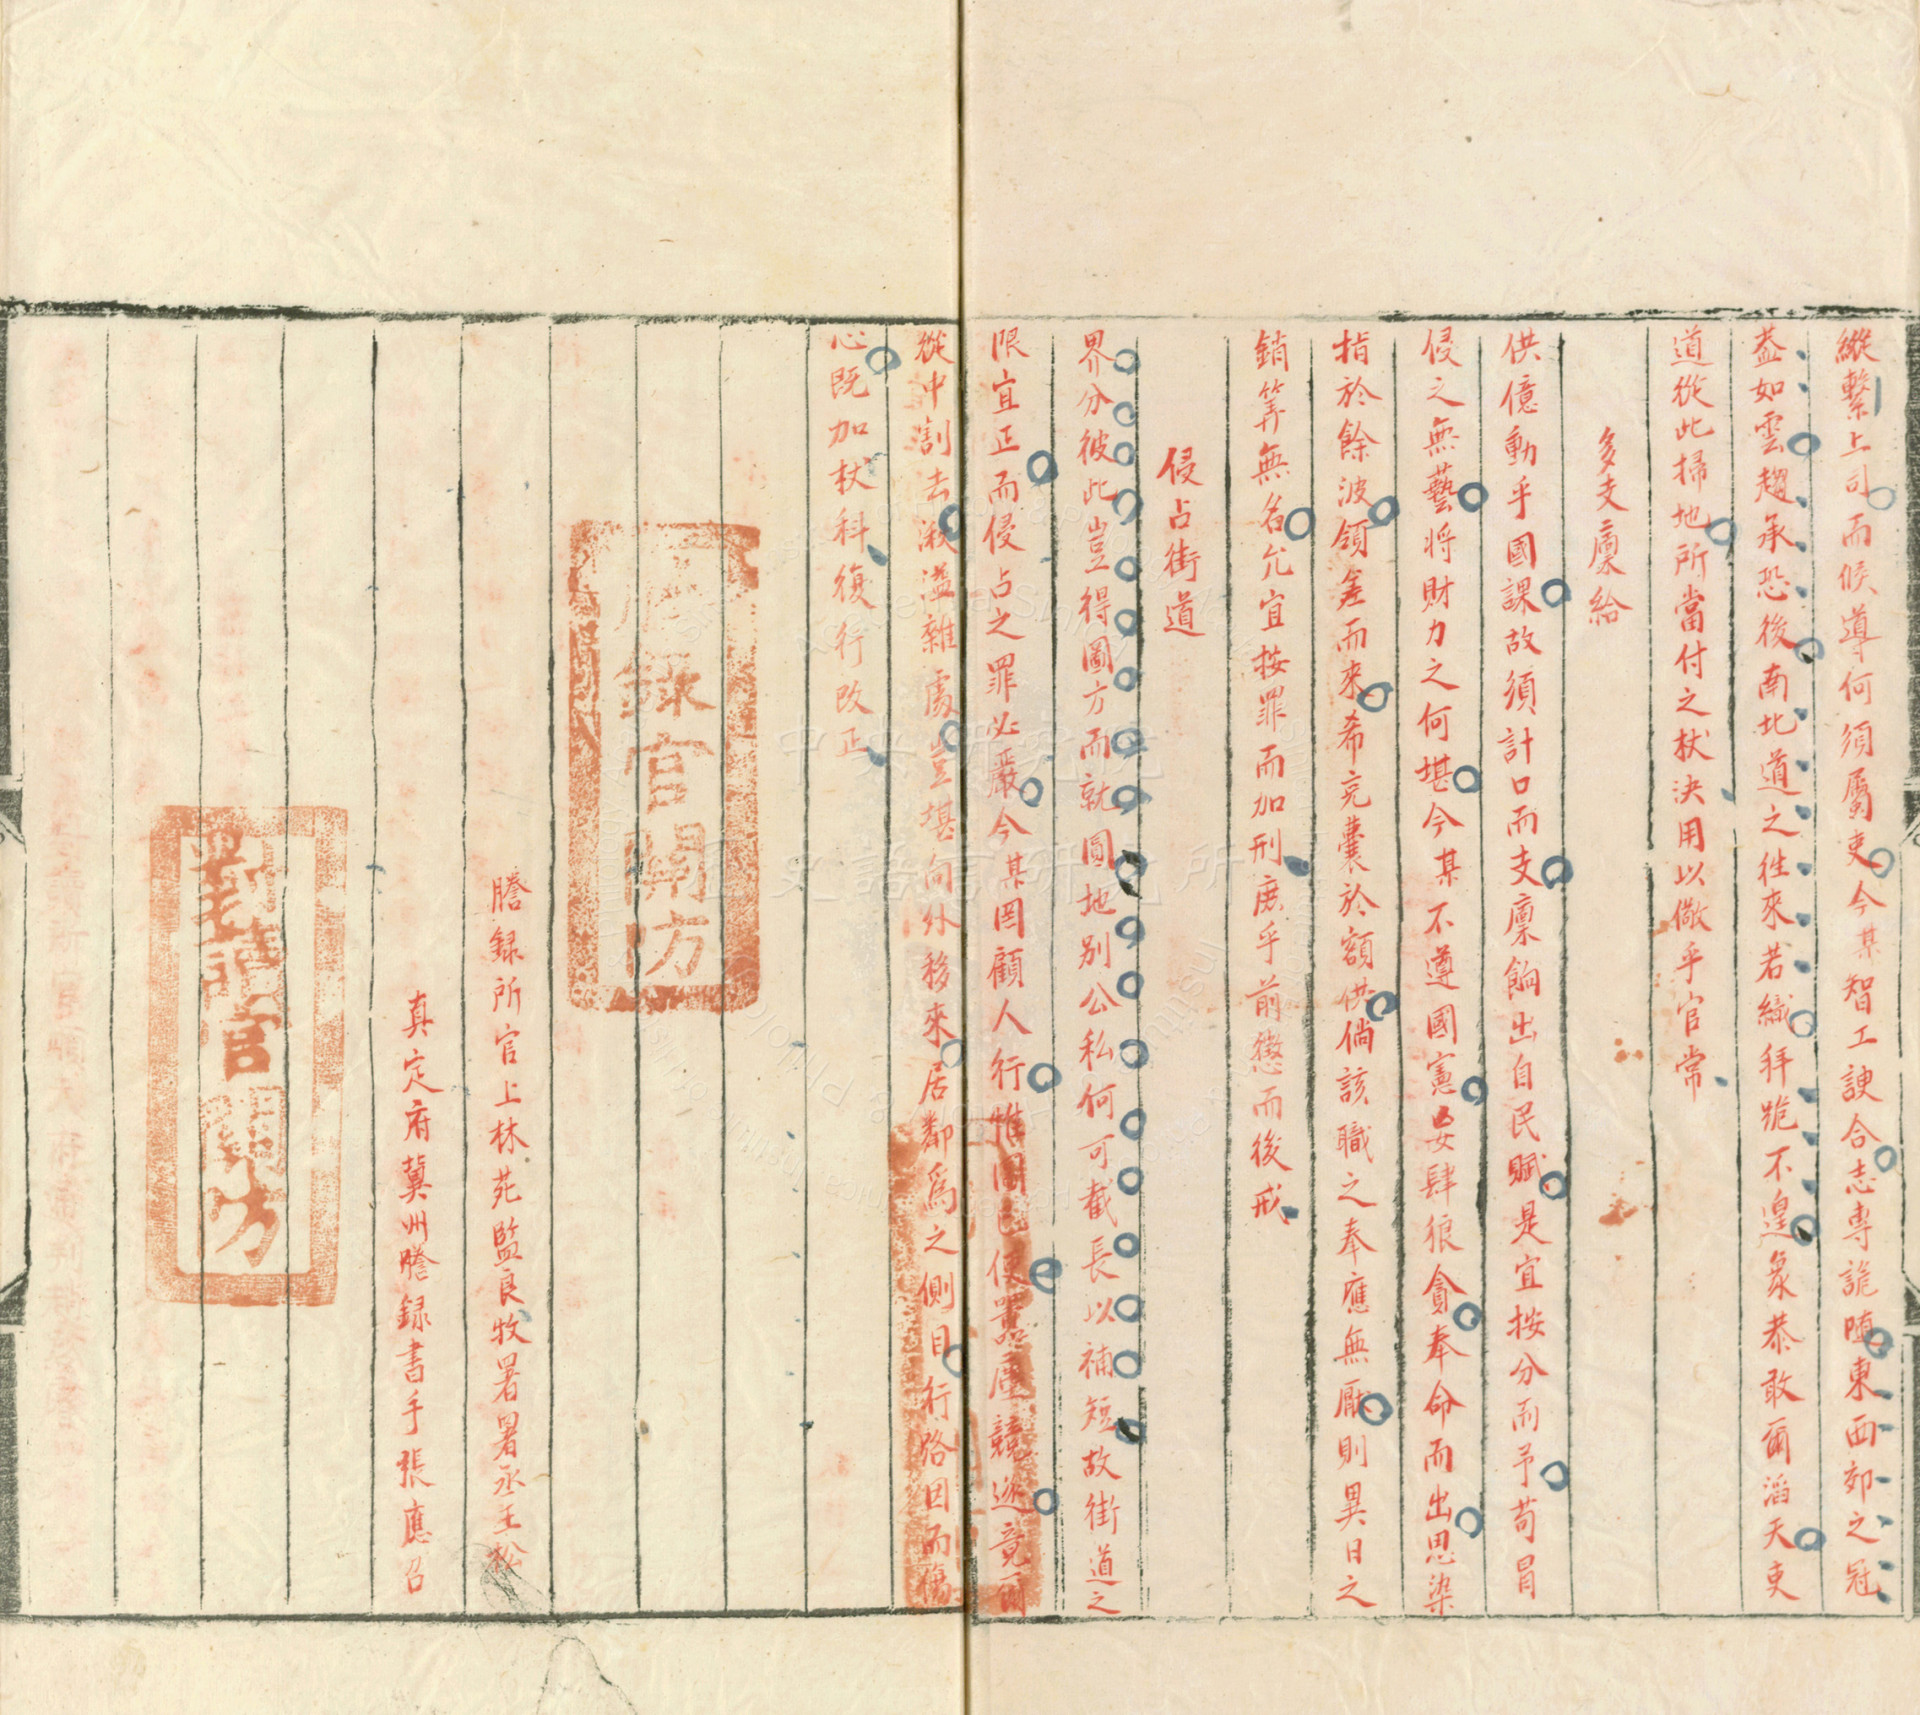 縱繫上司而候導何須屬吏今某智工諛合志專詭隨東西郊之冠
葢如雲趨承恐後南北道之徃來若織拜跪不遑象恭敢爾滔天吏
道從此掃地所當付之杖決用以儆乎官常
多支廪給
供億動乎國課故須計口而支廪餉出自民賦是宜按分而予苟冒
侵之無藝將財力之何堪今某不遵國憲妄肆狼貪奉命而出思染
指於餘波領差而來希充囊於額供倘該職之奉應無厭則異日之
銷筭無名允宜按罪而加刑庶乎前懲而後戒
侵占街道
界分彼此豈得圖方而就圓地別公私何可截長以補短故街道之
限宜正而侵占之罪必嚴今某罔顧人行惟圖已便嚣廛競逐竟爾
從中割去湫溢雜處豈堪向外移來居鄰爲之側目行路因而傷
心既加杖科復行改正
謄録官關防
謄録所官上林苑監良牧署署丞王松
真定府冀州謄録書手張應召
對讀官關防
中央研究院
歷史語言研究所